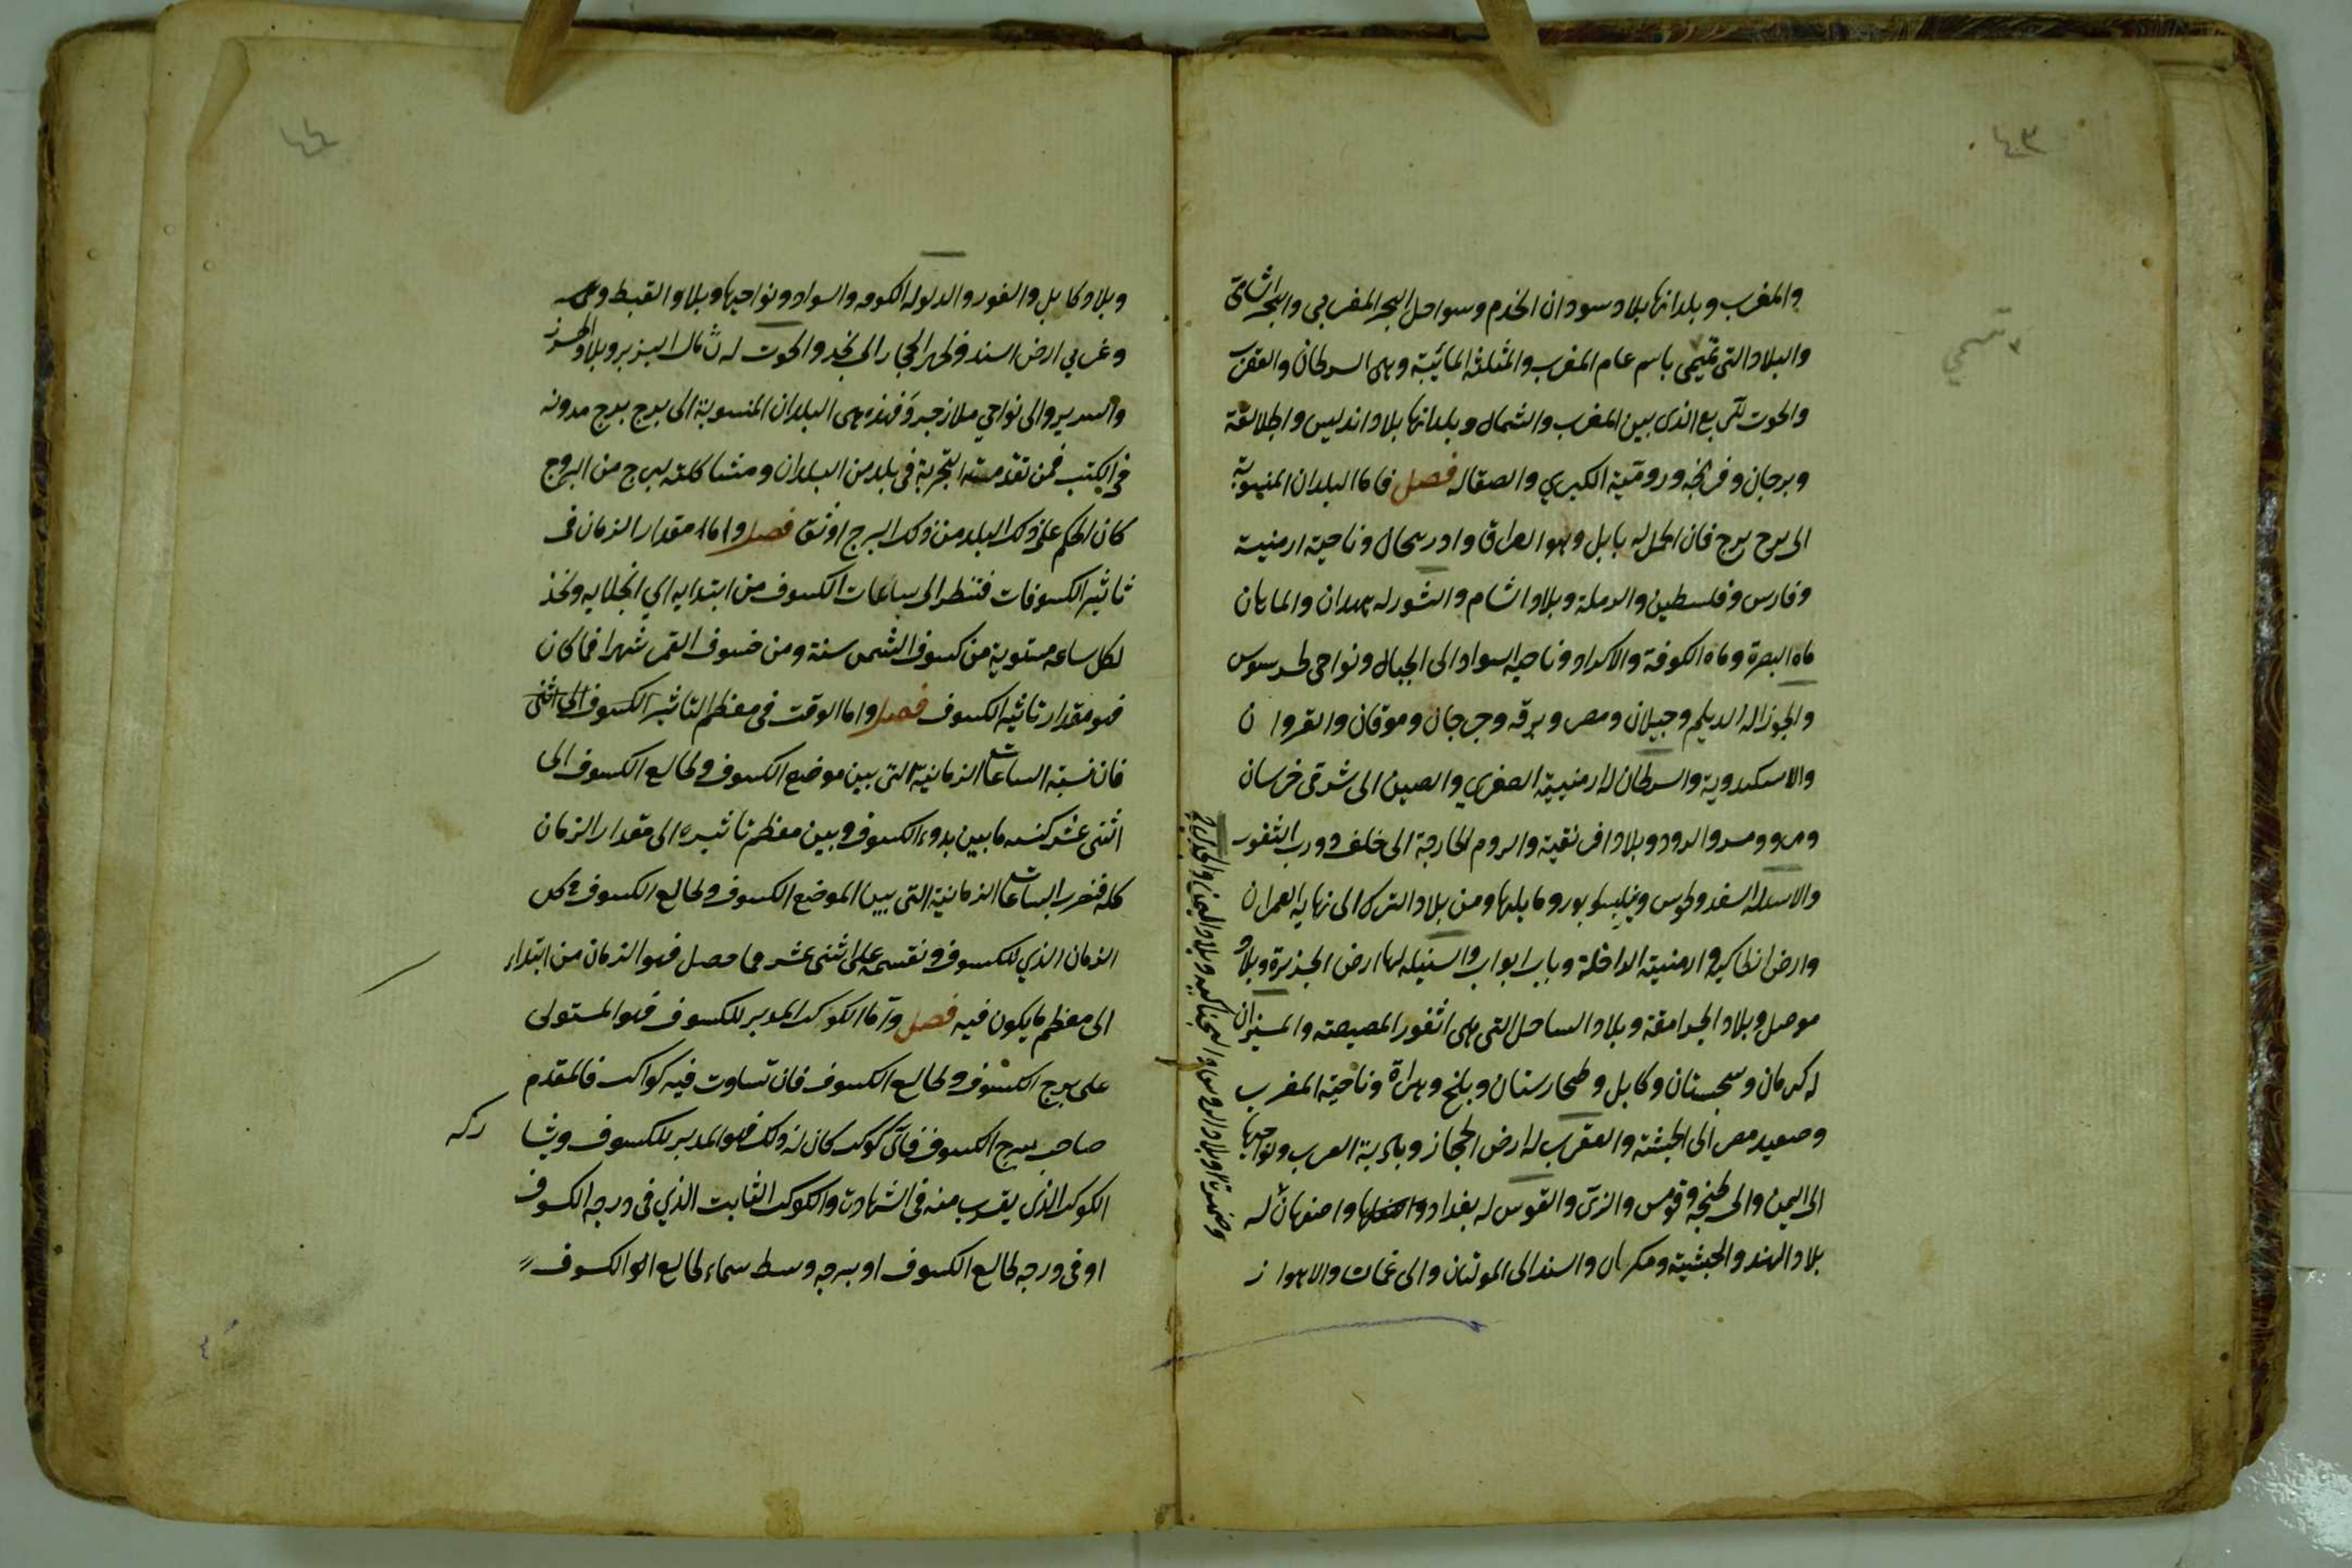 ٤٣
والمغرب وبلدانها بلاد سودان الخدم وسواحل البحر المغربي والبحر الشامي
والبلاد التي تسمى باسم عام المغرب والمثلثة المائية وهي السرطان والعقرب
والحوت للربع الذي بين المغرب والشمال وبلدانها بلاد اندلس والجلالقة
وبرجان وفرنجه ورومية الكبري والصقاله فصل فاما البلدان المنسوبة
الى برج برج فان الحمل له بابل وهو العراق وادربيجان وناحية ارمنية
وفارس وفلسطين والرملة وبلاد الشام والثور له همدان والماهان
ماه البصرة وماه الكوفة والاكراد وناحيه السواد الى الجبال ونواحي طرسوس
والجوزا له الديلم وجيلان ومصر وبرقه وجرجان وموقان والقروان
والاسكندرية والسرطان له ارمنيية الصغري والصين الى شرقي خرسان
ومرو ومرو الرود وبلاد افريقية والروم الخارجة الى خلف درب الثغور
والاسد له السغد وطوس ونيسابور وما يليها ومن بلاد الترك الى نهاية العمران
وارض انطاكيه وارمنية الداخلة وباب ابواب والسنبله لها ارض الجزيرة وبلاد
موصل وبلاد الجرامقة وبلاد الساحل التي هي اثغور المصيصته والميزان
له كرمان وسجستان وكابل وطخارستان وبلخ وهراة وناحية المغرب
وصعيد مصر الى الحبشة والعقرب له ارض الحجاز وبادية العرب ونواحيها
الى اليمن والى طنجه وقومس والري والقوس له بغداد واصفهان له
بلاد الهند والحبشية ومكران والسند الى الموتان والى عمان والاهواز
٤٤
وبلاد كابل والغور والدلو له الكوفه والسواد ونواحيها وبلاد القبط
وغربي ارض السند وظهر الحجاز الى نجد والحوت له شمال
والسرير والى نواحي ملازجرد فهذه هي البلدان المنسوبة الى برج برج مدونه
في الكتب فمن تقدمت التجربة في بلد من البلدان ومشاكلته لبرج من البروج
كان الحكم على ذلك البلد من ذلك البرج اوثق فصل واما مقدار الزمان في
تاثير الكسوفات فتنظر الى ساعات الكسوف من ابتدايه الي انجلايه ونخذ
لكل ساعه مستوية من كسوف الشمس سنة ومن خسوف القمر شهرا فما كان
فهو مقدار تاثير الكسوف فصل واما الوقت في معظم التاثير الكسوف
فان نسبة الساعات الزمانية التي بين موضع الكسوف وطالع الكسوف الى
اثنى عشر كنسبه ما بين بدو الكسوف وبين معظم تاثيره الى مقدار الزمان
كله فنضرب الساعات الزمانية التي بين الموضع الكسوف وطالع الكسوف في كل
الزمان الذي للكسوف ونقسمه على اثنى عشر فما حصل فهو الزمان من ابتداء
الى معظم ما يكون فيه فصل واما الكوكب المدبر للكسوف فهو المستولى
على برج الكسوف وطالع الكسوف فان تساوت فيه كواكب فالمقدم
صاحب برج الكسوف فاي كوكب كان له ذلك فهو المدبر للكسوف ويشا ركه
الكوكب الذي يقرب منه في الشهادت والكوكب الثابت الذي في درجه الكسوف
او في درجه طالع الكسوف او بدرجه وسط سماء طالع الكسوف